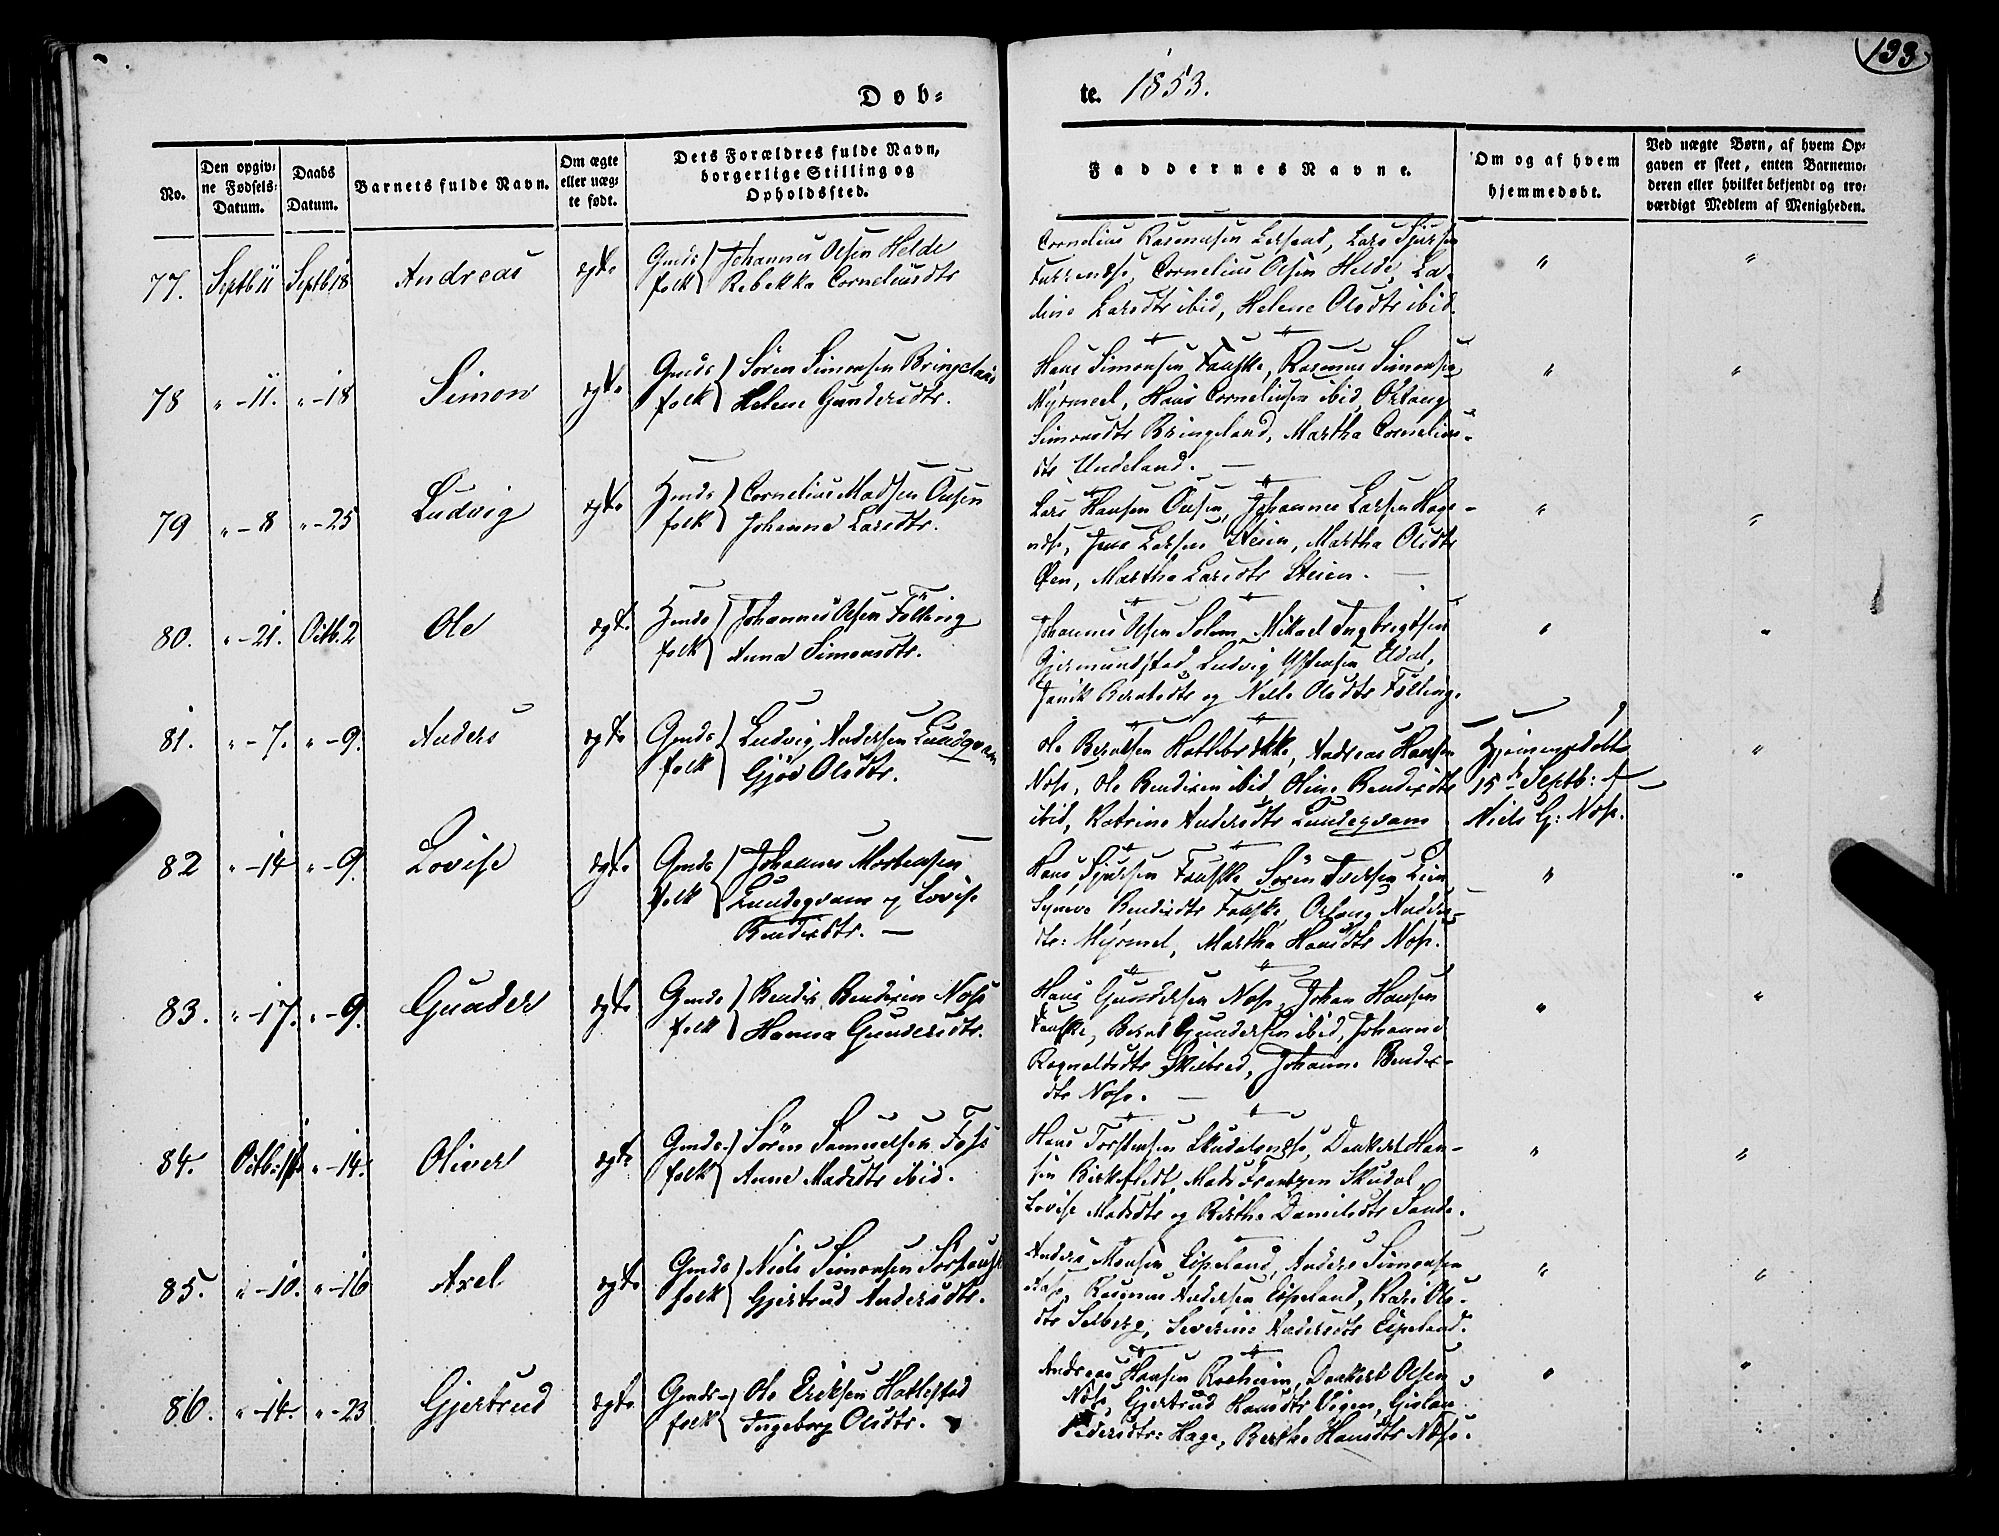 133
Døb-
te. 1853.
No.
Den opgiv-
ne Fødsels-
Datum.
Daabs
Datum.
Barnets fulde Navn.
Om ægte
eller uæg-
te født.
Dets Forældres fulde Navn,
borgerlige Stilling og
Opholdssted.
Faddernes Navne.
Om og af hvem
hjemmedøbt.
Ved uægte Børn, af hvem Op-
gaven er skeet, enten Barnemo-
deren eller hvilket bekjendt og tro-
værdigt Medlem af Menigheden.
77. Septb 11 Septb 18 Andreas ægte
Gmds folk
Johannes Olsen Helde
Rebekka Corneliusdtr
Cornelius Rasmusen
Cornelius Olsen Helde,
Larsdtr ibid, Helene Olsdtr ibid.
" "
78 " -11. " -18 Simon ægte
Gmds folk
Sören Simonsen Bringeland
Helene Gundersdtr.
Hans Simonsen Fauske, Rasmus Simonsen
Myrmeel, Hans Corneliusen ibid, Orlaug
Simonsdtr Bringeland, Martha Cornelius-
dtr Undeland. —
" "
79 " -8 " -25 Ludvig ægte
Hmds folk
Cornelius Madsen
Johanna Larsdtr.
Lars Hansen Johannes Larsen Hage-
Larsen Steien, Martha Olsdtr
Martha Larsdtr Steien. —
" "
80. " -21. Octb. 2 Ole ægte
Hmds folk
Johannes Olsen Fölling
Anna Simonsdtr.
Johannes Olsen Solem, Mikael Ingbrigtsen
Gjermundstad, Ludvig
og Olsdtr Fölling.
" "
81. " -7. " -9. Anders ægte
Gmds folk
Ludvig Andersen Lundqvam
Gjöv Olsdtr.
Ole Berntsen Hatlebrække, Andreas Hansen
Nøse, Ole Bendixen ibid, Oline Bendixdtr
ibid, Katrine Andersdtr Lundeqvam
Hjemmedøbt
15de Septb: af
Niels G: Nøse.
"
82 " -14 " -9. Lovise ægte
Gmds folk
Johannes Mortensen
Lundeqvam og Lovise
Bendixdtr. —
Hans Sjursen Fauske Sören Iversen Lien
Syneve Bendixdtr Fauske, Orlaug Anders-
dtr: Myrmel, Martha Hansdtr Nøse.
" "
83. " -17. " -9. Gunder ægte
Gmds folk
Bendix Bendixen Nøse
Hanna Gundersdtr.
Hans Gundersen Nøse, Johan Hansen
Fauske, Bernt Gundersen ibid, Johanne
Ragnaldsdtr Skilbred, Johanne Bendix-
dtr Nøse. —
" "
84. Octb: 1st " -14. Oliver ægte
Gmds folk
Sören Samuelsen Foss
Anne Madsdtr ibid.
Hans Torstensen Dankert Han-
sen Birkefledt Mads Frantzen Skudal
Lovise Madsdtr og Birthe Danielsdtr Sande.
" "
85. " -10. " -16 Axel ægte
Gmds folk
Niels Simonsen
Gjertrud Andersdtr.
Anders Monsen Espeland, Anders Simonsen
Rasmus Andersen Espeland, Kari Ols-
dtr Selberg, Severine Andersdtr Espeland.
" "
86. " -14. " -23 Gjertrud ægte
Gmds folk
Ole Eriksen Hatlestad
Ingeborg Olsdtr.
Andreas Hansen Dankert Olsen
Nøse, Gjertrud Hansdtr Vigen,
Pedersdtr: Hage, Berthe Hansdtr Nøse.
" "